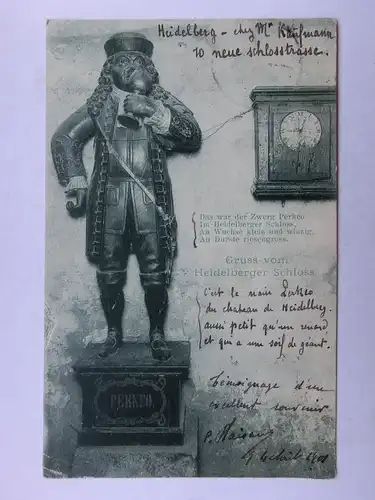 Heidelberg - chez Mr Kaufmann
10 neue schlosstrasse.
Das war der Zwerg Perkeo
Im Heidelberger Schloss,
An Wuchse klein und winzig,
An Durste riesengross.
Gruss vom
Heidelberger Schloss
c'est le nain Perkeo
du chateau de Heidelberg
aussi petit qu'un renard
et qui a une soif de géant.
Témoignage d'un
excellent souvenir
P.
1901
PERKEO.